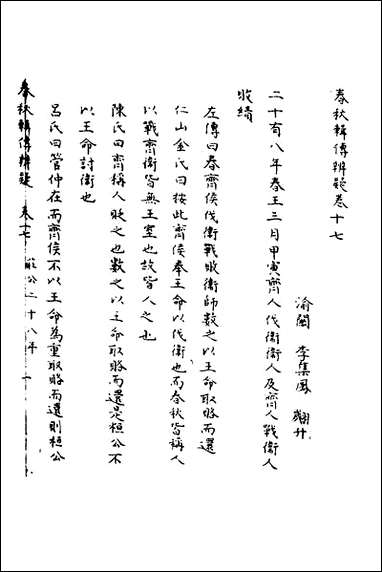 春秋輯傳辨疑卷十七
渝關 李集鳳 翽升
二十有八年春王三月甲寅齊人伐衛衛人及齊人戰衛人
敗績
左傳曰春齊侯伐衛戰敗衛師數之以王命取賂而還
仁山金氏曰按此齊侯奉王命以伐衛也而春秋皆稱人
以戰齊衛皆無王室也故皆人之也
陳氏曰齊稱人貶之也數之以王命取賂而還是桓公不
以王命討衛也
呂氏曰管仲在而齊侯不以王命為重取賂而還則桓公
春秋輯傳辨疑 卷十七 莊公二十八年 一